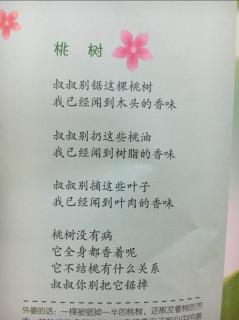 桃 树
叔叔别锯这棵桃树
我已经闻到木头的香味
叔叔别扔这些桃油
我已经闻到树脂的香味
叔叔别摘这些叶子
我已经闻到叶肉的香味
桃树没有病
它全身都香着呢
它不结桃有什么关系
叔叔你别把它锯掉
外婆的话：一棵被锯掉一半的桃树，还散发着树的